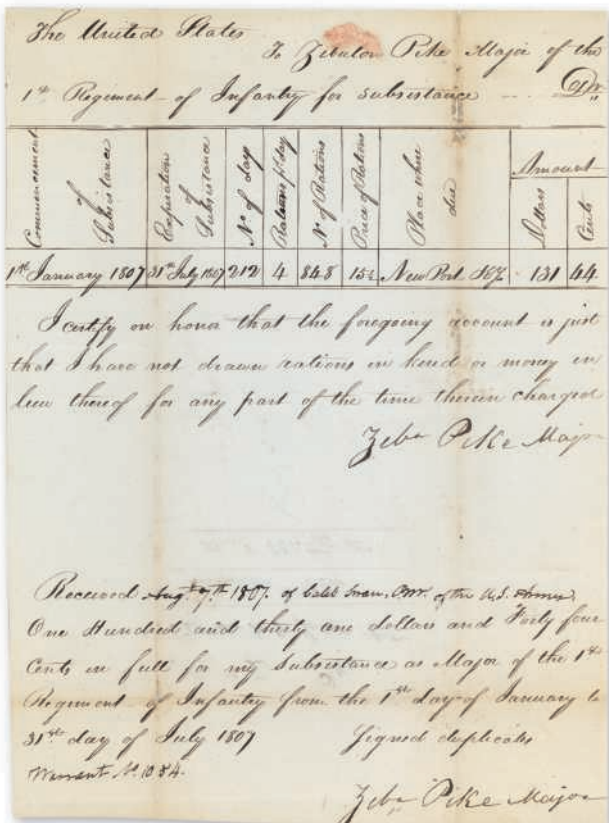 The United States
To Zebulon Pike Major of the
1st Regiment of Infantry for subsistance Dr
Commencement of Subsistance
Expiration of Subsistance
No of days
Rations pr day
No of Rations
Price of Rations
Place where due
Amount
Dollars
Cents
1st January 1807 31st July 1807 212 4 848 15½ New Port Ky. 131 44
I certify on honor that the foregoing account is just
that I have not drawn rations in kind or money in
lieu thereof for any part of the time therein charged
Zebn Pike Major
Received Augt 7th 1807. of Caleb Swan, P.Mr. of the U.S. Army
One Hundred and thirty one dollars and Forty four
Cents in full for my Subsistance as Major of the 1st
Regiment of Infantry from the 1st day of January to
31st day of July 1807 Signed duplicates
Warrant No 1054.
Zebn Pike Major